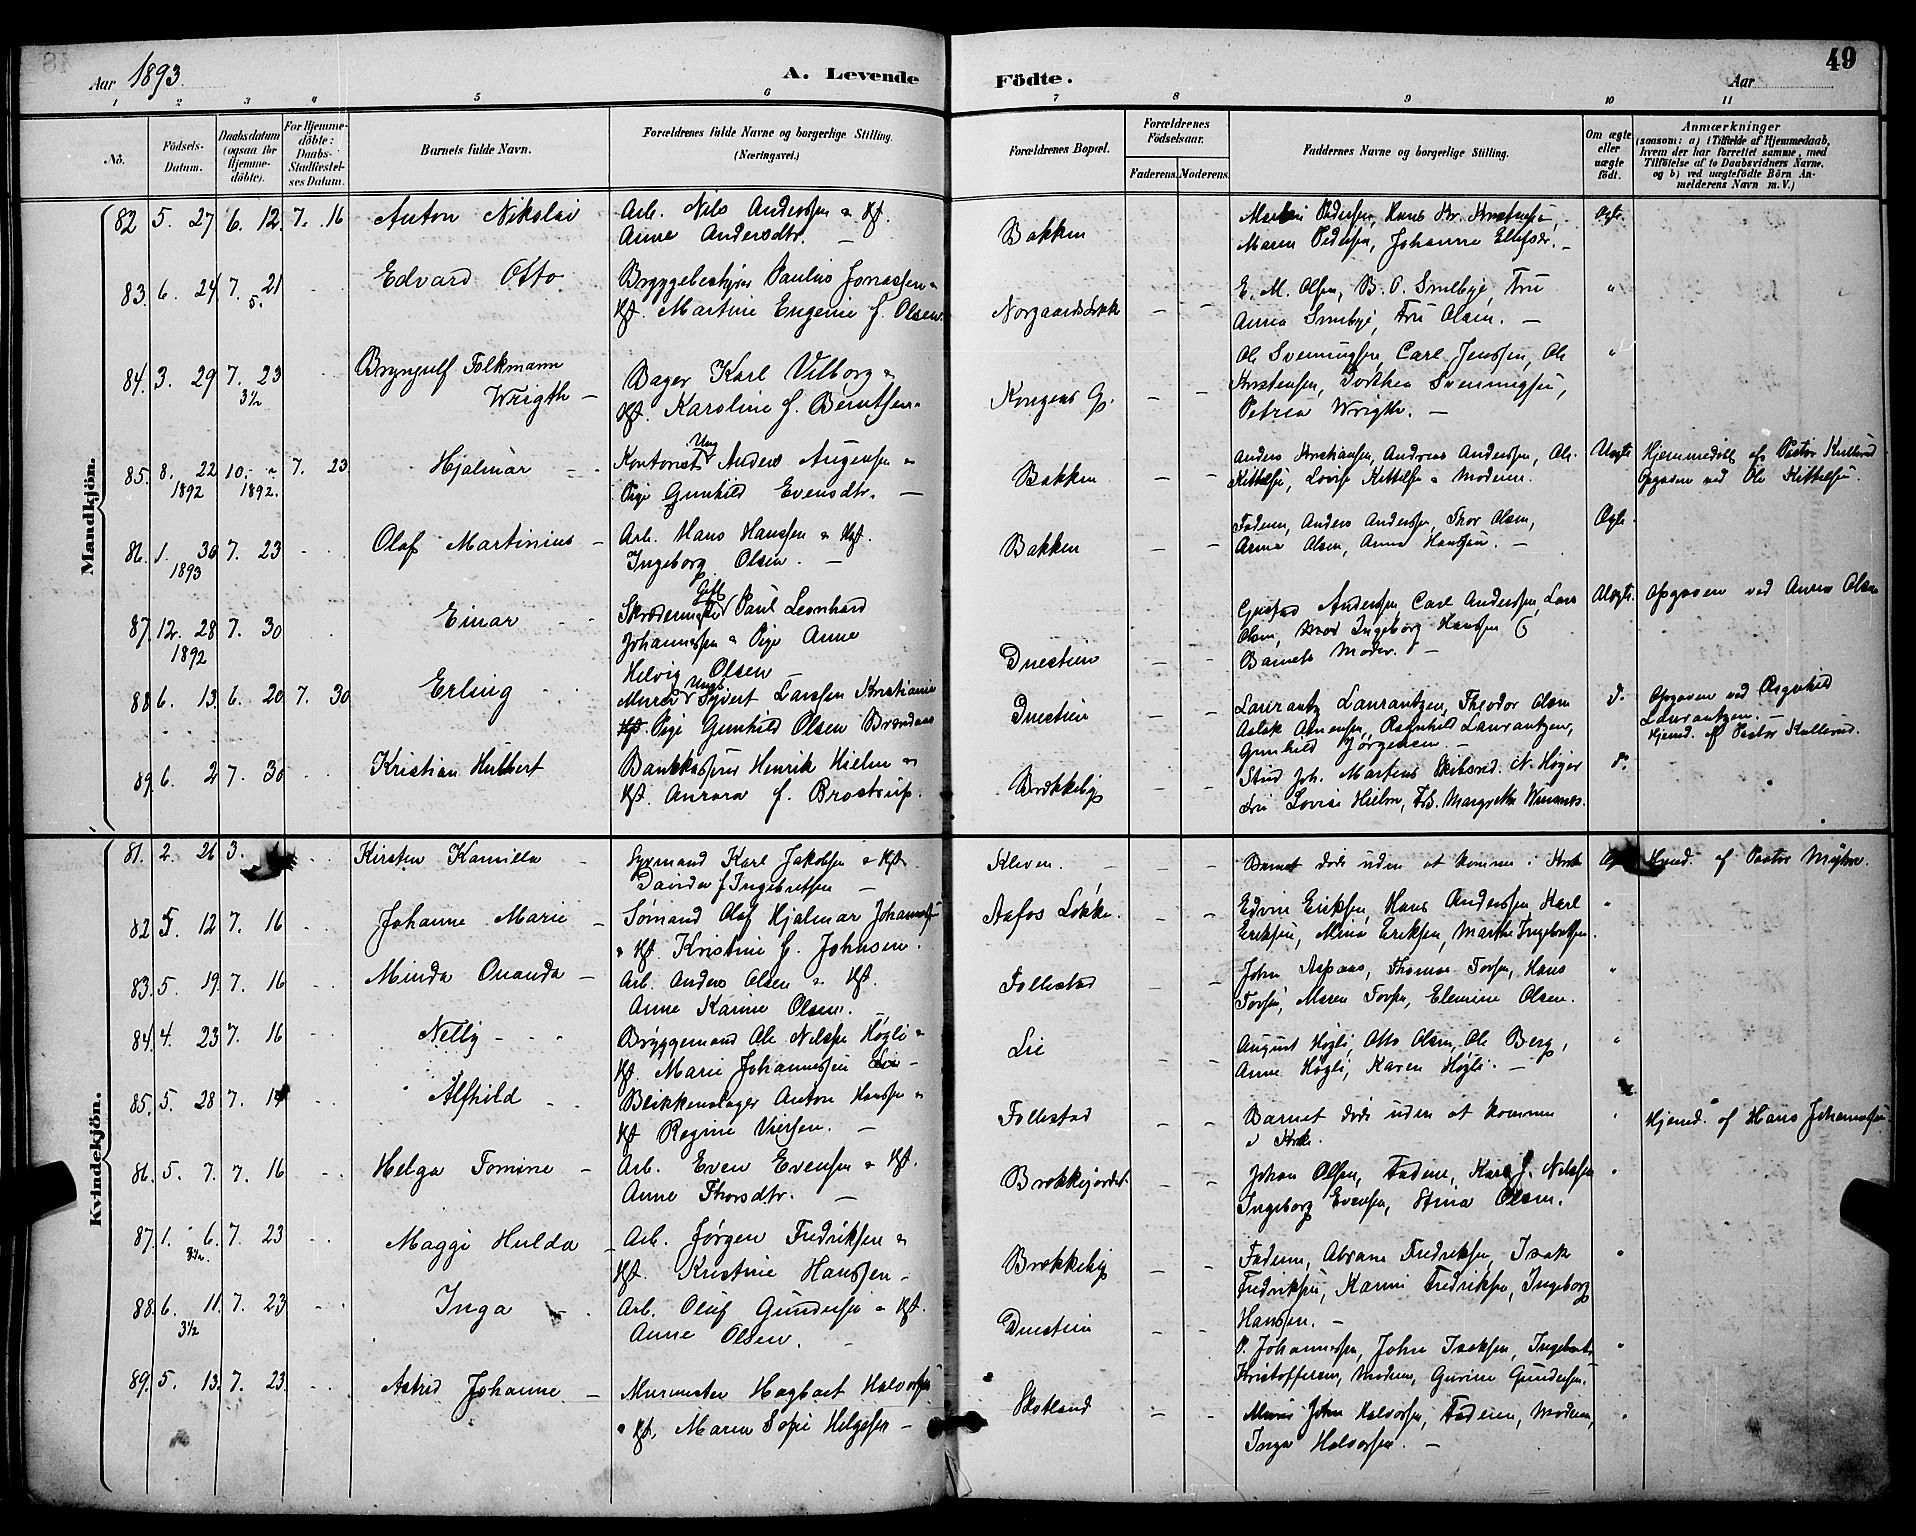 49
Aar 1893.
A. Levende Födte.
Aar
1 2 3 4 5 6 7 8 9 10 11
No.
Födsels-Datum.
Daabsdatum (ogsaa for Hjemme-döbte).
For Hjemme-döbte: Daabs-Stadfæstel-ses Datum.
Barnets fulde Navn.
Forældrenes fulde Navne og borgerlige Stilling. (Næringsvei.)
Forældrenes Bopæl.
Forældrenes Födselsaar.
Faderens. Moderens.
Faddernes Navne og borgerlige Stilling.
Om ægte eller uægte födt.
Anmærkninger
(saasom: a) i Tilfælde af Hjemmedaab,
hvem der har forrettet samme, med
Tilföielse af to Daabsvidners Navne,
og b) ved uægtefödte Börn An-
melderens Navn m. V.)
Mandkjön.
82 5. 27 6. 12. 7. 16 Anton Nikolai Arb. Nils Anderssen & Kst.
Anne Andersdtr. —
Bakken
Pedersen, Hans Kr. Kristensen,
Maren Pedersen, Johanne Ellefsdr. —
Ægte.
83. 6. 24 7. 21 Edvard Otto Bryggebestyrer Paulus Jonassen &
5.
Kst. Martine Eugenie f. Olsen.
E. M. Olsen, B. O. Smebye, Fru
Anna Smebye, Fru Olsen. —
84. 3. 29 7. 23 Bryngulf Folkmann
3½
Wrigth — Bager Karl Vilborg &
Kst. Karoline f. Berntsen.
Kongens G.
Ole Svenningsen, Carl Jenssen, Ole
Kristensen, Dorthea Svenningsen,
Petrea Wrigth. —
85. 8. 22 10. 7. 23 Hjalmar Kontorist Ung Anders Augensen &
1892 1892.
Pige Gunhild Evensdtr. —
Bakken
Anders Kristiansen, Andreas Anderssen, Ole
Kittelsen, Lovise Kittelsen & Moderen.
Uægte Hjemmedöbt af Pastor Kullerud
Opgaven ved Ole Kittelsen.
86. 1. 30 7. 23 Olaf Martinius — Arb. Hans Hanssen & Kst.
1893
Ingeborg Olsen. —
Bakken
Faderen, Anders Anderssen, Thor Olsen,
Anna Olsen, Anna Hanssen. —
Ægte.
87. 12. 28 7. 30 Einar Skrædermester Gift Paul Leonhard
1892
Johannessen & Pige Anne
Helvig Olsen
Gustav Anderssen, Carl Anderssen, Lars
Olsen, Mod Ingeborg Hanssen
Barnets Moder. —
Uægte. Opgaven ved Anna Olsen
88 6. 13. 6. 20 7. 30 Erling Murer Ungk. Syvert Larssen Kristiania
Kst. Pige Gunhild Olsen
Laurantz Laurantzen, Theodor Olsen
Aslak Asmensen, Ragnhild Laurantzen,
Gunhild Jörgensen —
Opgaven ved Ragnhild
Laurantzen. —
Hjemd. af Pastor Kullerud.
89. 6. 2 7. 30 Kristian Hulbert Bankkasserer Henrik Hielm &
Kst. Aurora f. Brostrup.
Brækkeby
Stud. Joh. Martens Skilsrod. N. Höyer
Lovise Hielm, Frk. Margrethe
Kvindekjön.
81. 2. 26 3. Kirsten Kamilla Sømand Karl Jakobsen & Kst.
Davida f Ingebretsen —
Kleven
Barnet döde uden at komme i Kirke
Hjemd. af Pastor Myhre.
82 5. 12 7. 16 Johanne Marie — Sømand Olaf Hjalmar Johannessen
& Kst. Kristine f. Johnsen.
Aafos Løkke.
Edvin Eriksen, Hans Anderssen Karl
Eriksen, Mina Eriksen, Marthe Ingebretsen.
83. 5. 19. 7. 16 Minda Ouanda — Arb. Anders Olsen & Kst.
Anne Karine Olsen.
Follestad
John Aspaas, Thomas Torsen, Hans
Torsen, Maren Torsen, Elemine Olsen.
84. 4. 23 7. 16 Nelly Bryggemand Ole Nilssen Høgli &
Kst. Marie Johannessen Lie —
Lie
August Høgli, Otto Olsen, Ole Berg,
Anne Høgli, Karen Høgli. —
85. 5. 28 7. Alfhild Blikkenslager Anton Hanssen &
Kst Regine Viersen. —
Follestad
Barnet döde uden at komme
i Kirke.
Hjemd. af Hans Johannessen
86. 5. 7. 7. 16 Helga Tomine — Arb. Even Evensen & Kst.
Anne Thorsdtr. —
Brækkejordet.
Johan Olsen, Faderen, Karl J. Nilssen
Ingeborg Evensen, Stina Olsen.
87. 1. 6. 7. 23 Maggi Hulda — Arb. Jørgen Fredriksen &
Kst. Kristine Hanssen —
Brækkeby
Faderen, Abram Fredriksen, Isak
Fredriksen, Karine Fredriksen, Ingeborg
Hanssen. —
88. 6. 11. 7. 23 Inga Arb. Oluf Gundersen & Kst.
3½
Anne Olsen.
P. Johannessen, John Isaksen, Ingeborg
Kristoffersen, Moderen, Gurine Gundersen.
89. 5. 13. 7. 23. Astrid Johanne — Murmester Hagbart Halvorsen
& Kst. Maren Sofie Helgesen —
Skotland
Murer John Halvorsen, Faderen, Moderen,
Inga Halvorsen. —